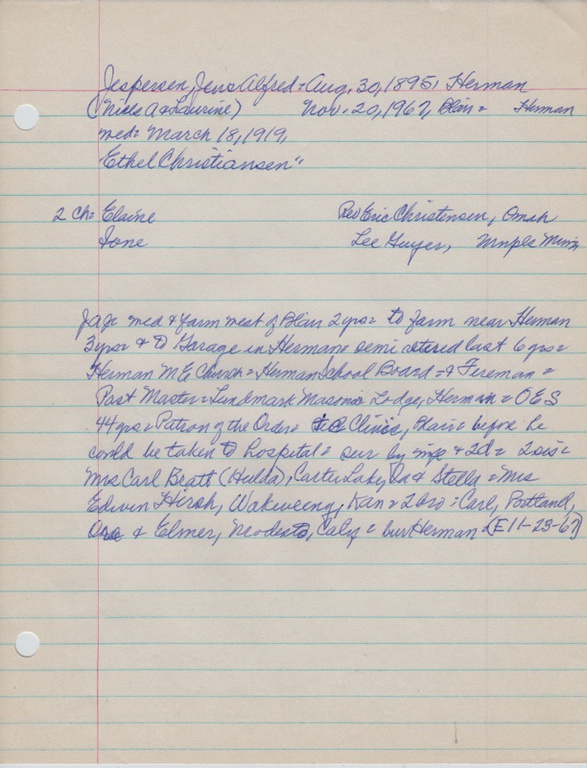 Jespersen, Jens Alfred = Aug. 30, 1895, Herman
(Niels A & Laurine) Nov. 20, 1967, Blair = Herman
med = March 18, 1919,
Ethel Christiansen"
2 Ch = Elaine Rev Eric Christensen, Omah
Ione Lee Guyer, Mnpls Minn
JAJ = med & farm west of Blair 2 yrs = to farm near Herman
3 yrs = & to Garage in Herman = semi retired last 6 yrs =
Herman M E Church = Herman School Board = & Fireman =
Past Master = Landmark Masonic Lodge, Herman = O E S
44 yrs = Patron of the Order = Clinic, Blair = before he
could be taken to hospital = sur by wife & 2d = 2 sis =
Mrs Carl Brath (Hulda), Carter Lake, Ia & Stella = Mrs
Edwin Hirsh, Wakeeny, Kan = 2 bro = Carl, Portland,
Ore & Elmer, Modesto, Calif = bur Herman (E 11-23-67)